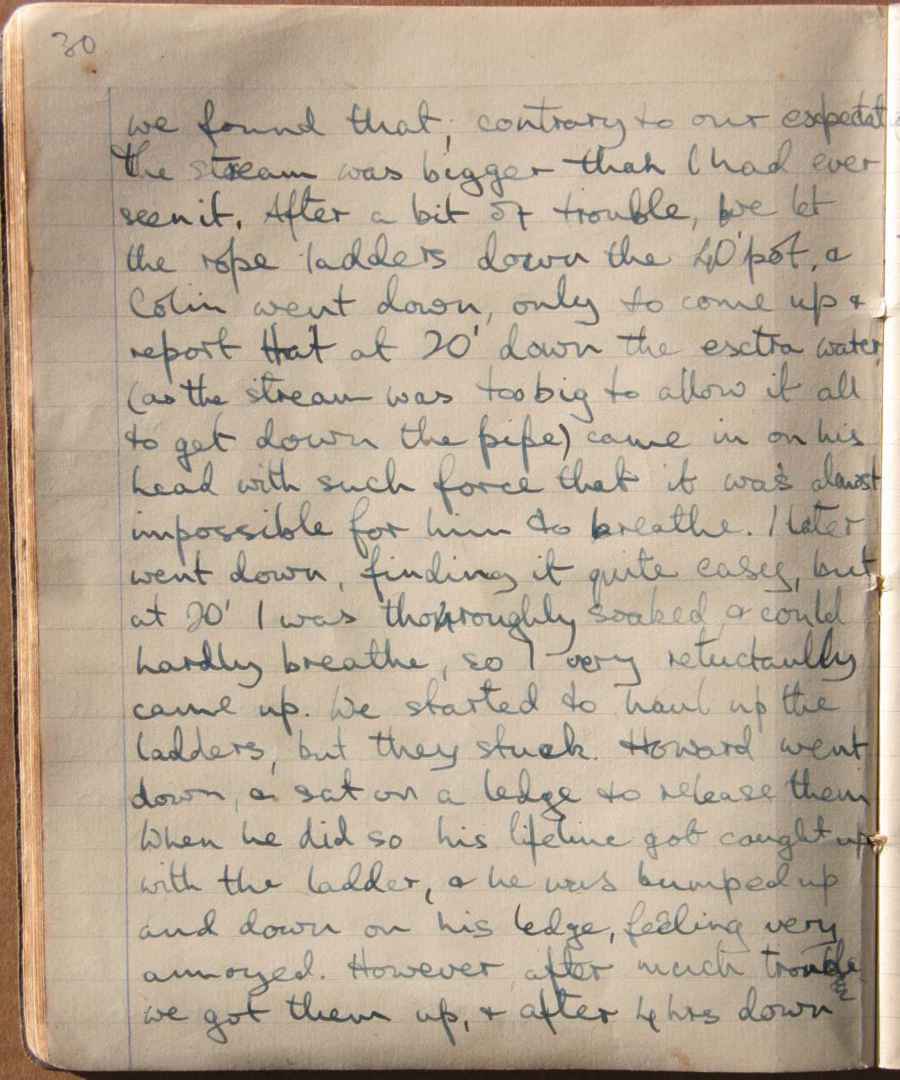 30
we found that, contrary to our expectat
the stream was bigger than I had ever
seen it. After a bit of trouble, we let
the rope ladders down the 40' pot, &
Colin went down, only to come up &
report that at 20' down the extra water
(as the stream was too big to allow it all
to get down the pipe) came in on his
head with such force that it was almost
impossible for him to breathe. I later
went down, finding it quite easy, but
at 20' I was thoroughly soaked & could
hardly breathe, so I very reluctantly
came up. We started to haul up the
ladders, but they stuck. Howard went
down, & sat on a ledge to release them
When he did so his lifeline got caught up
with the ladder, & he was bumped up
and down on his ledge, feeling very
annoyed. However after much trouble
we got them up, & after 4 hrs down